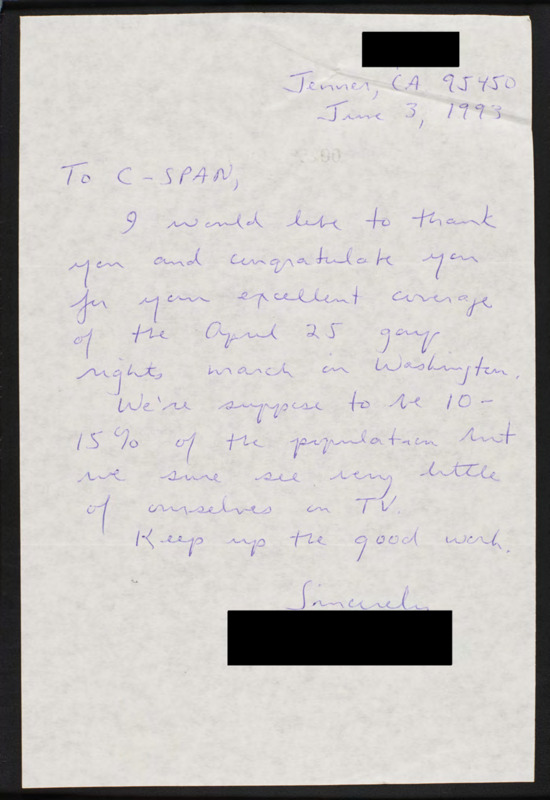 Jenner, CA 95450
June 3, 1993
To C-SPAN,
I would like to thank
you and congratulate you
for your excellent coverage
of the April 25 gay
rights march in Washington.
We're suppose to be 10-
15% of the population but
we sure see very little
of ourselves on TV.
Keep up the good work.
Sincerely